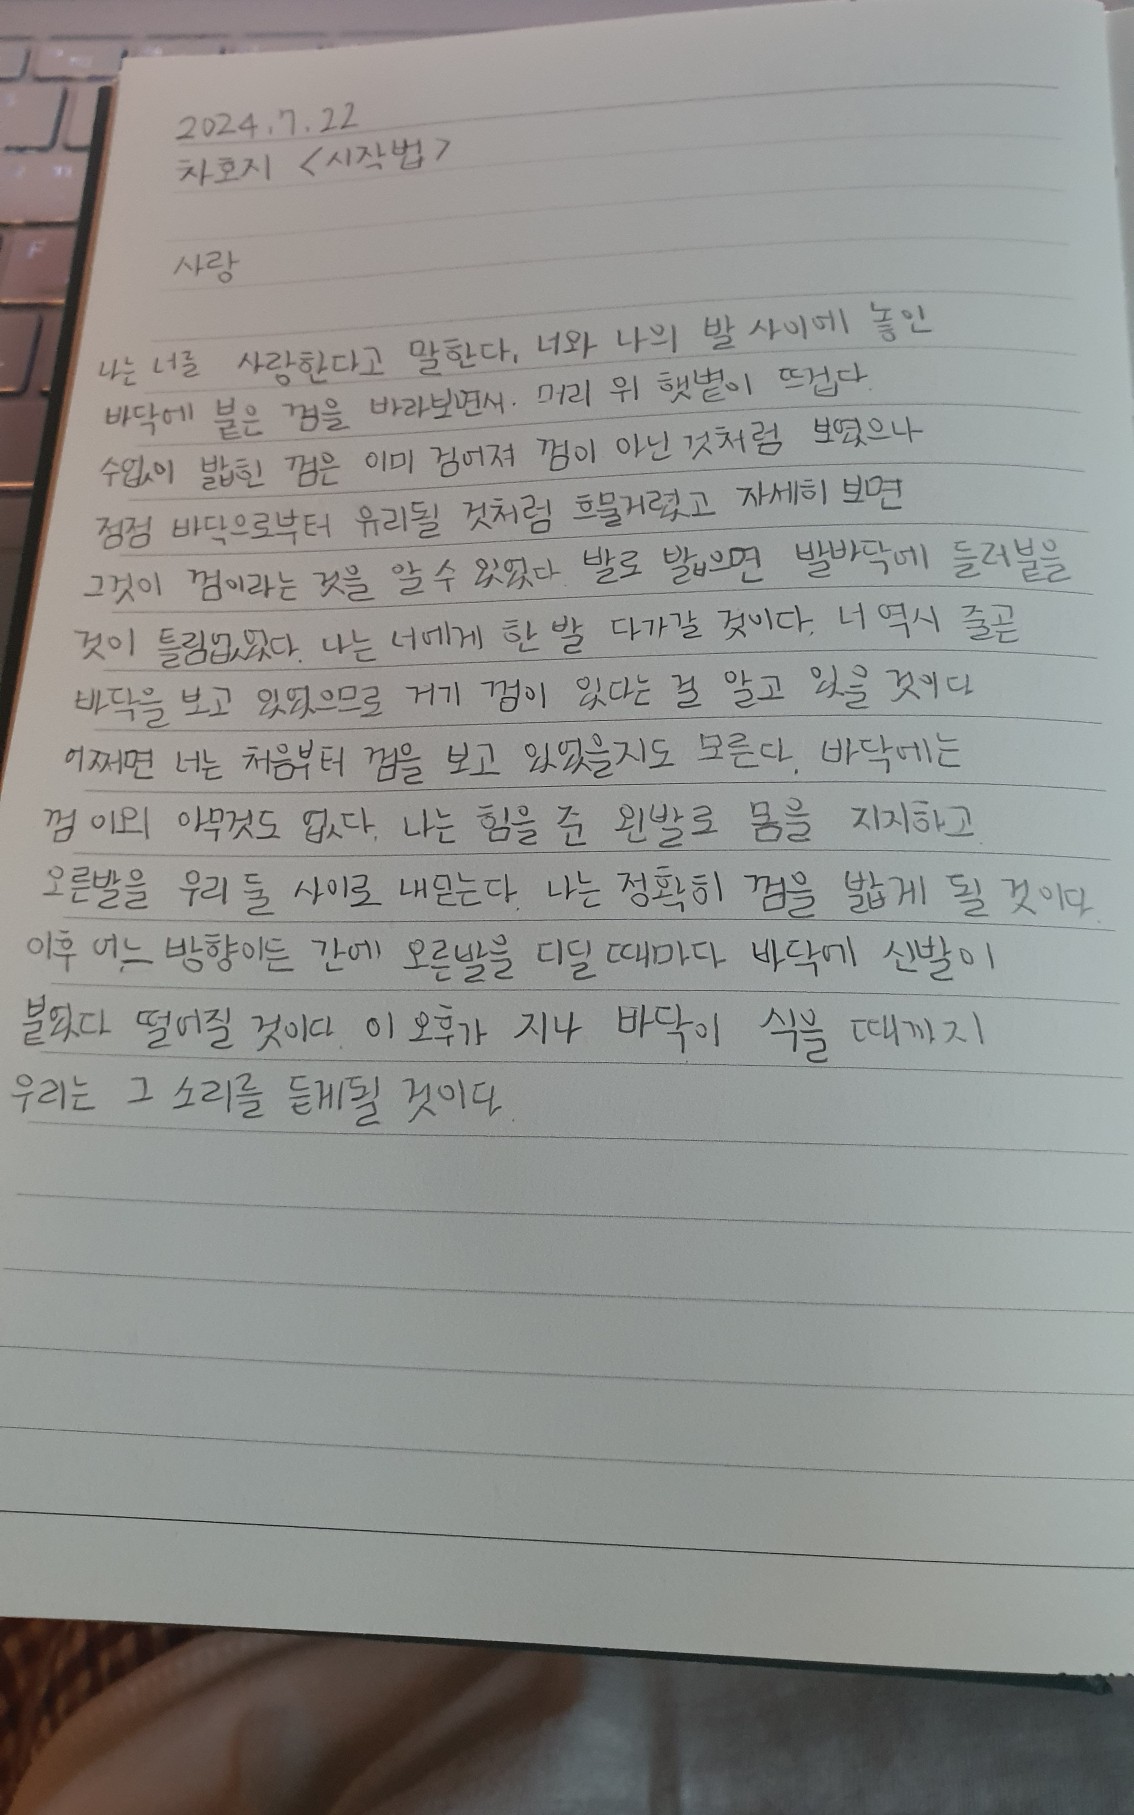 2024.7.22
차호지 <시작법>
사랑
나는 너를 사랑한다고 말한다. 너와 나의 발 사이에 놓인
바닥에 붙은 껌을 바라보면서. 머리 위 햇볕이 뜨겁다.
수없이 밟힌 껌은 이미 검어져 껌이 아닌 것처럼 보였으나
점점 바닥으로부터 유리될 것처럼 흐물거렸고 자세히 보면
그것이 껌이라는 것을 알 수 있었다. 발로 밟으면 발바닥에 들러붙을
것이 틀림없었다. 나는 너에게 한 발 다가갈 것이다. 너 역시 줄곧
바닥을 보고 있었으므로 거기 껌이 있다는 걸 알고 있을 것이다
어쩌면 너는 처음부터 껌을 보고 있었을지도 모른다. 바닥에는
껌 이외 아무것도 없다. 나는 힘을 준 왼발로 몸을 지지하고
오른발을 우리 둘 사이로 내딛는다. 나는 정확히 껌을 밟게 될 것이다.
이후 어느 방향이든 간에 오른발을 디딜 때마다 바닥에 신발이
붙었다 떨어질 것이다. 이 오후가 지나 바닥이 식을 때까지
우리는 그 소리를 듣게될 것이다.